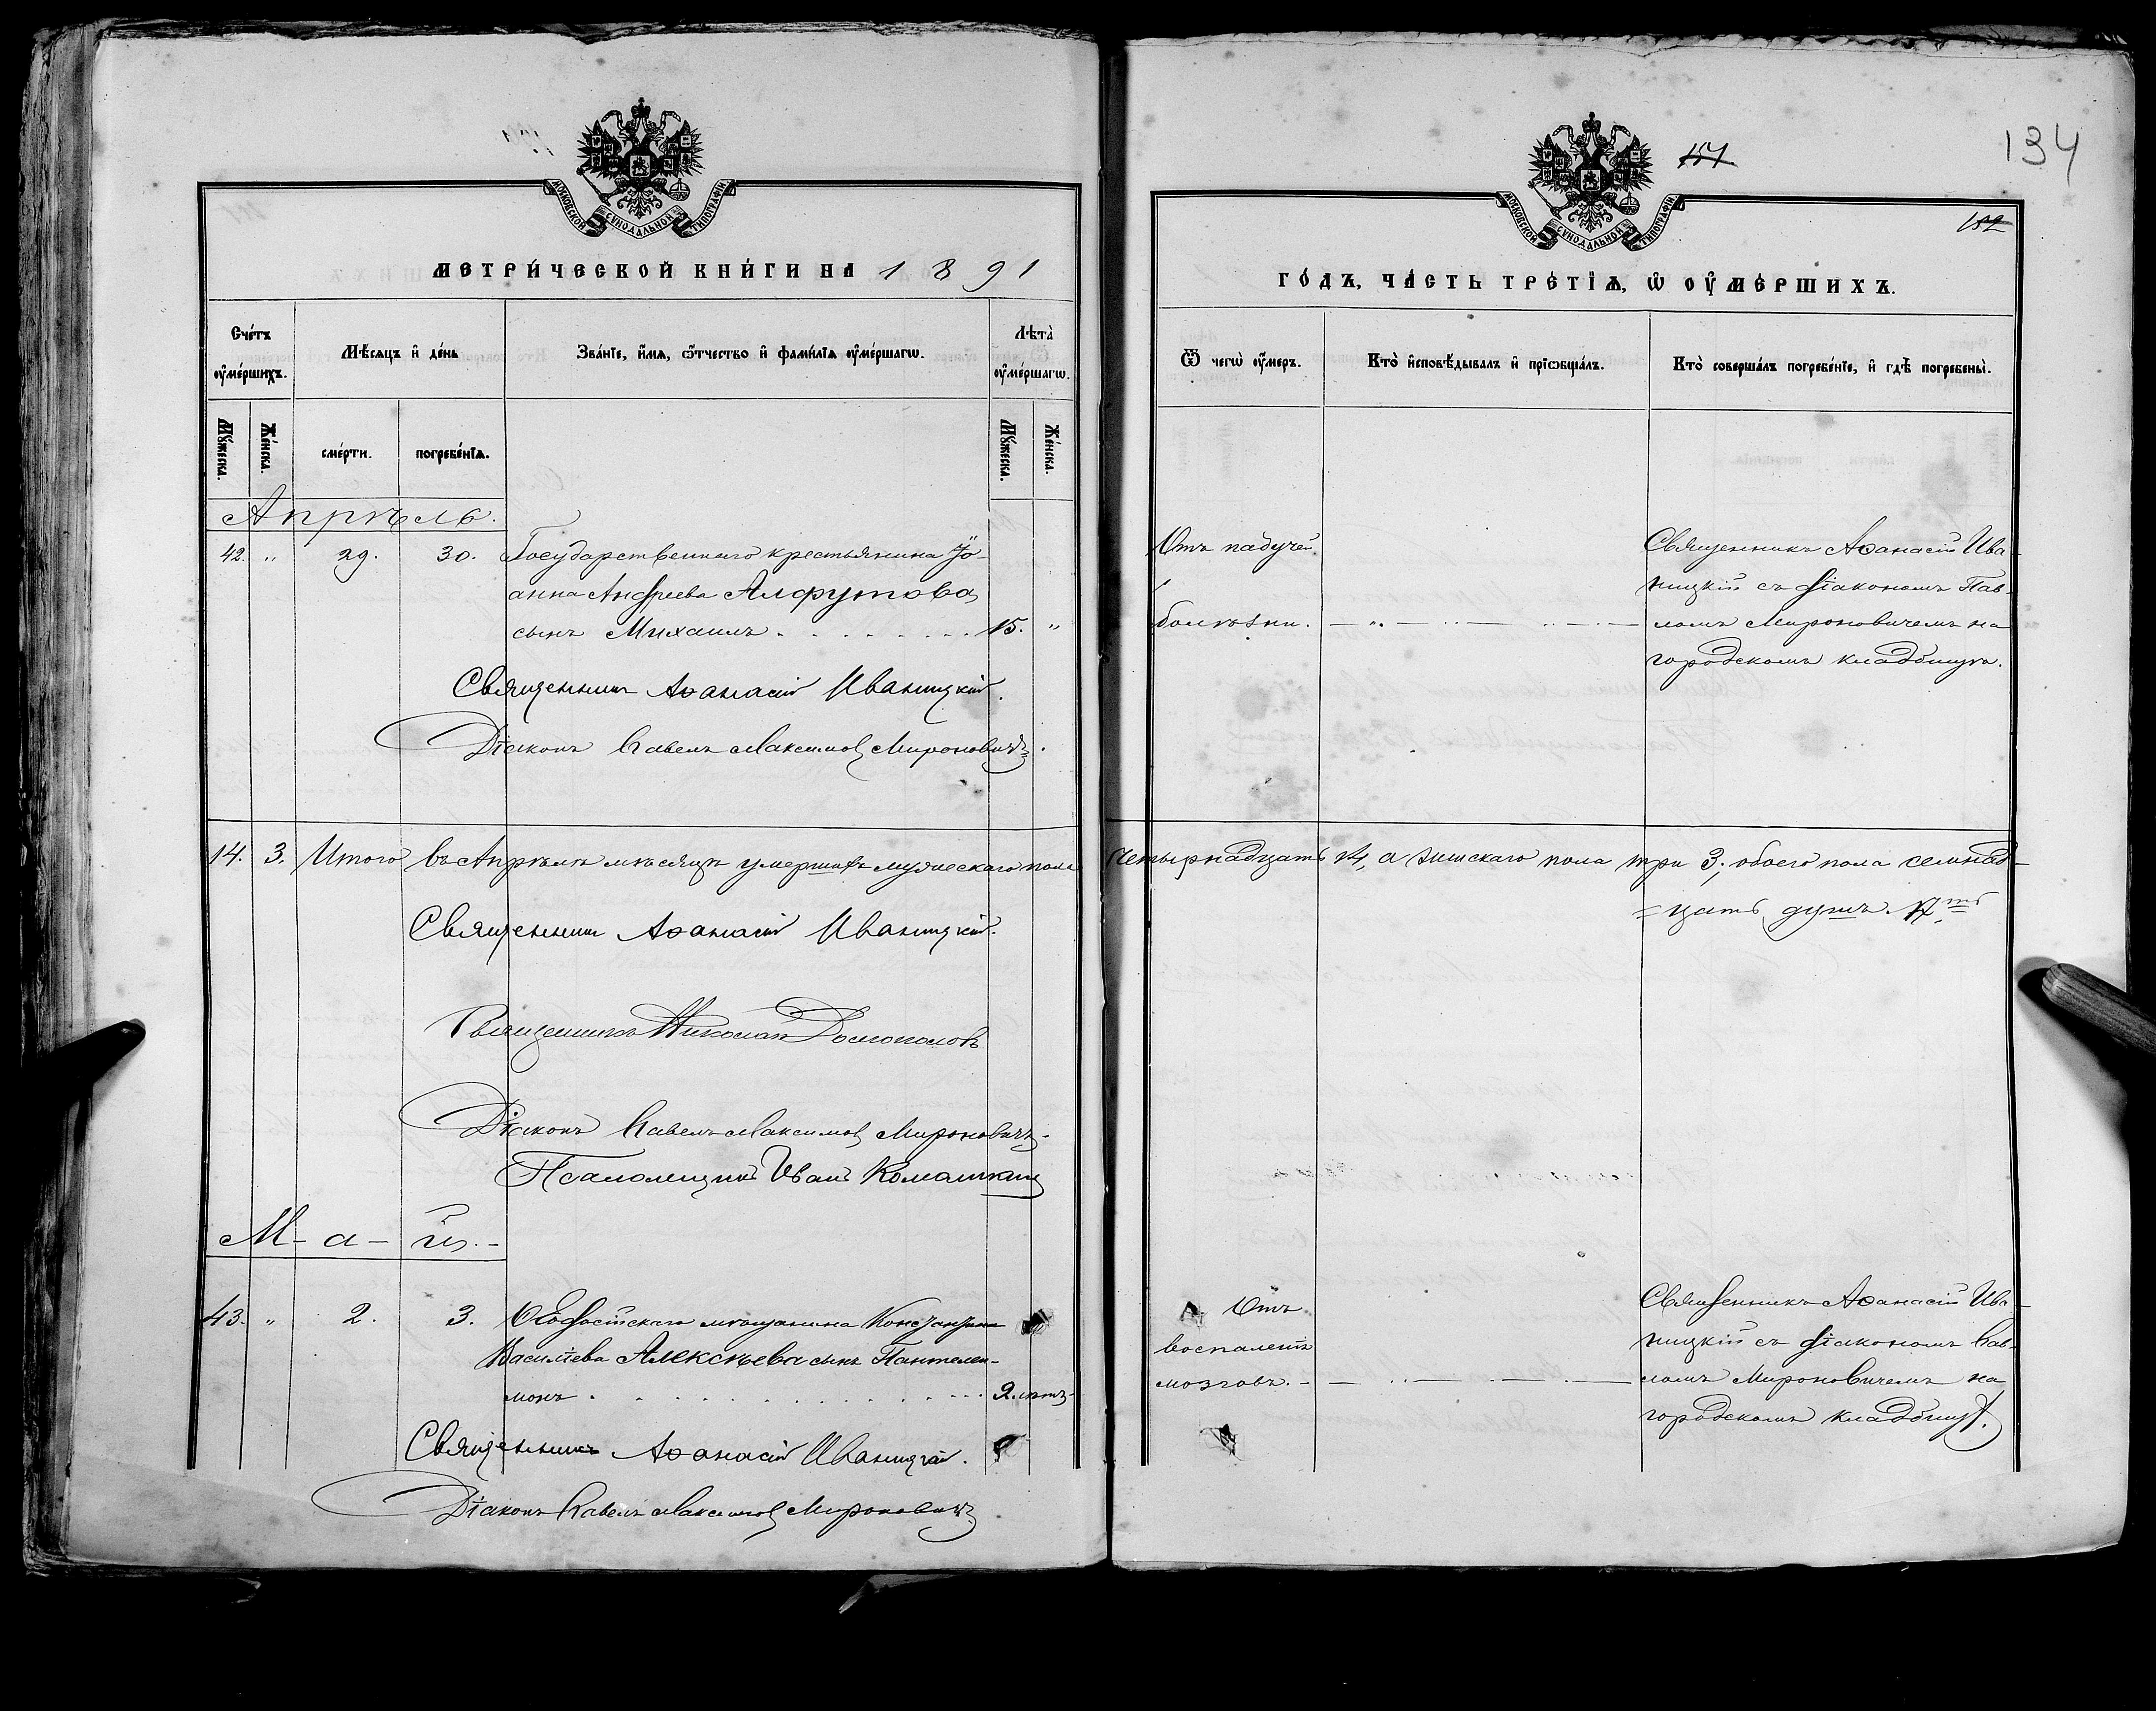 МОСКОВСКОЙ СѴНОДАЛЬНОЙ ТИПОГРАФІИ
МЕТРИ́ЧЕСКОЙ КНИ́ГИ НА 1891
Сче́тъ ᲂу҆ме́ршихъ.
Мѣ́сяцъ и҆ де́нь
Зва́нїе, и҆́мѧ, ѻ҆́тчество и҆ фами́лїѧ ᲂу҆ме́ршагѡ.
Лѣта̀ ᲂу҆ме́ршагѡ.
Мꙋ́жеска.
Же́нска.
сме́рти.
погребе́нїѧ.
Мꙋ́жеска.
Же́нска.
Апрѣль.
42. „ 29. 30. Государственнаго крестьянина Іо-
анна Андреева Алфутова
сынъ Михаилъ . . . . . . . . 15. „
Священникъ Аѳанасій Иваницкій.
Діаконъ Павелъ Максимов Мироновичъ.
14. 3. Итого въ Апрѣлѣ мѣсяцѣ умершихъ мужескаго пола
Священникъ Аѳанасій Иваницкій.
Священникъ Николай
Діаконъ Павелъ Максимов Мироновичъ.
Псаломщикъ Иванъ Комашкин
М-а-й.-
43. „ 2. 3. Ѳеодосійскаго мѣщанина Константина
Василіева Алексѣева сынъ Пантелеи-
монъ . . . . . . . . . . . . 2. лѣтъ
Священникъ Аѳанасій Иваницкій.
Діаконъ Павелъ Максимов Мироновичъ.
134
151
МОСКОВСКОЙ СѴНОДАЛЬНОЙ ТИПОГРАФІИ
152
ГО́ДЪ, ЧА́СТЬ ТРЕ́ТЇѦ, Ѡ҆ ᲂУ҆МЕ́РШИХЪ.
Ѿ чегѡ̀ ᲂу҆́меръ.
Кто̀ и҆сповѣ́дывалъ и҆ прїѡбща́лъ.
Кто̀ соверша́лъ погребе́нїе, и҆ гдѣ̀ погребены̀.
Отъ падучей
болѣзни.
Священникъ Аѳанасій Ива-
ницкій съ діакономъ Пав-
ломъ Мироновичемъ на
городскомъ кладбищѣ.
четырнадцать 14, а женскаго пола три 3; обоего пола семнад-
=цать душъ. 17ть
Отъ
воспаленія
мозговъ.
Священникъ Аѳанасій Ива-
ницкій съ діакономъ Пав-
ломъ Мироновичемъ на
городскомъ кладбищѣ.